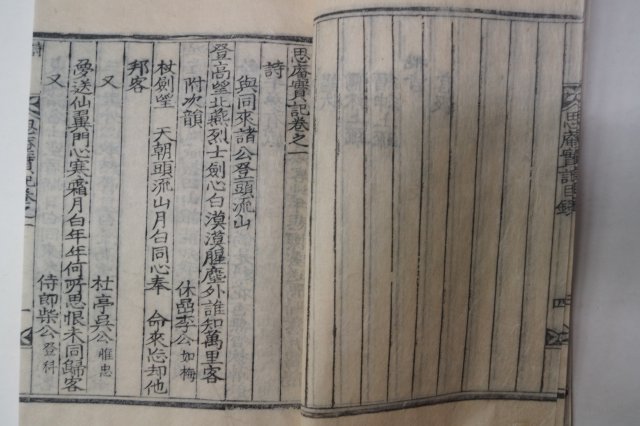 思庵實記目錄
四
思庵實記卷之一
詩
與同來諸公登頭流山
登高望北燕烈士劍心白漠漠腥塵外誰知萬里客
附次韻　休嵒李公如梅
杖劍望　天朝頭流山月白同心奉　命來忘却他
邦客
又　杜亭吳公惟忠
夢送仙翼門心寒霜月白年年何所思恨未同歸客
又　侍郎柴公登科
思庵實記卷之一
一
詩